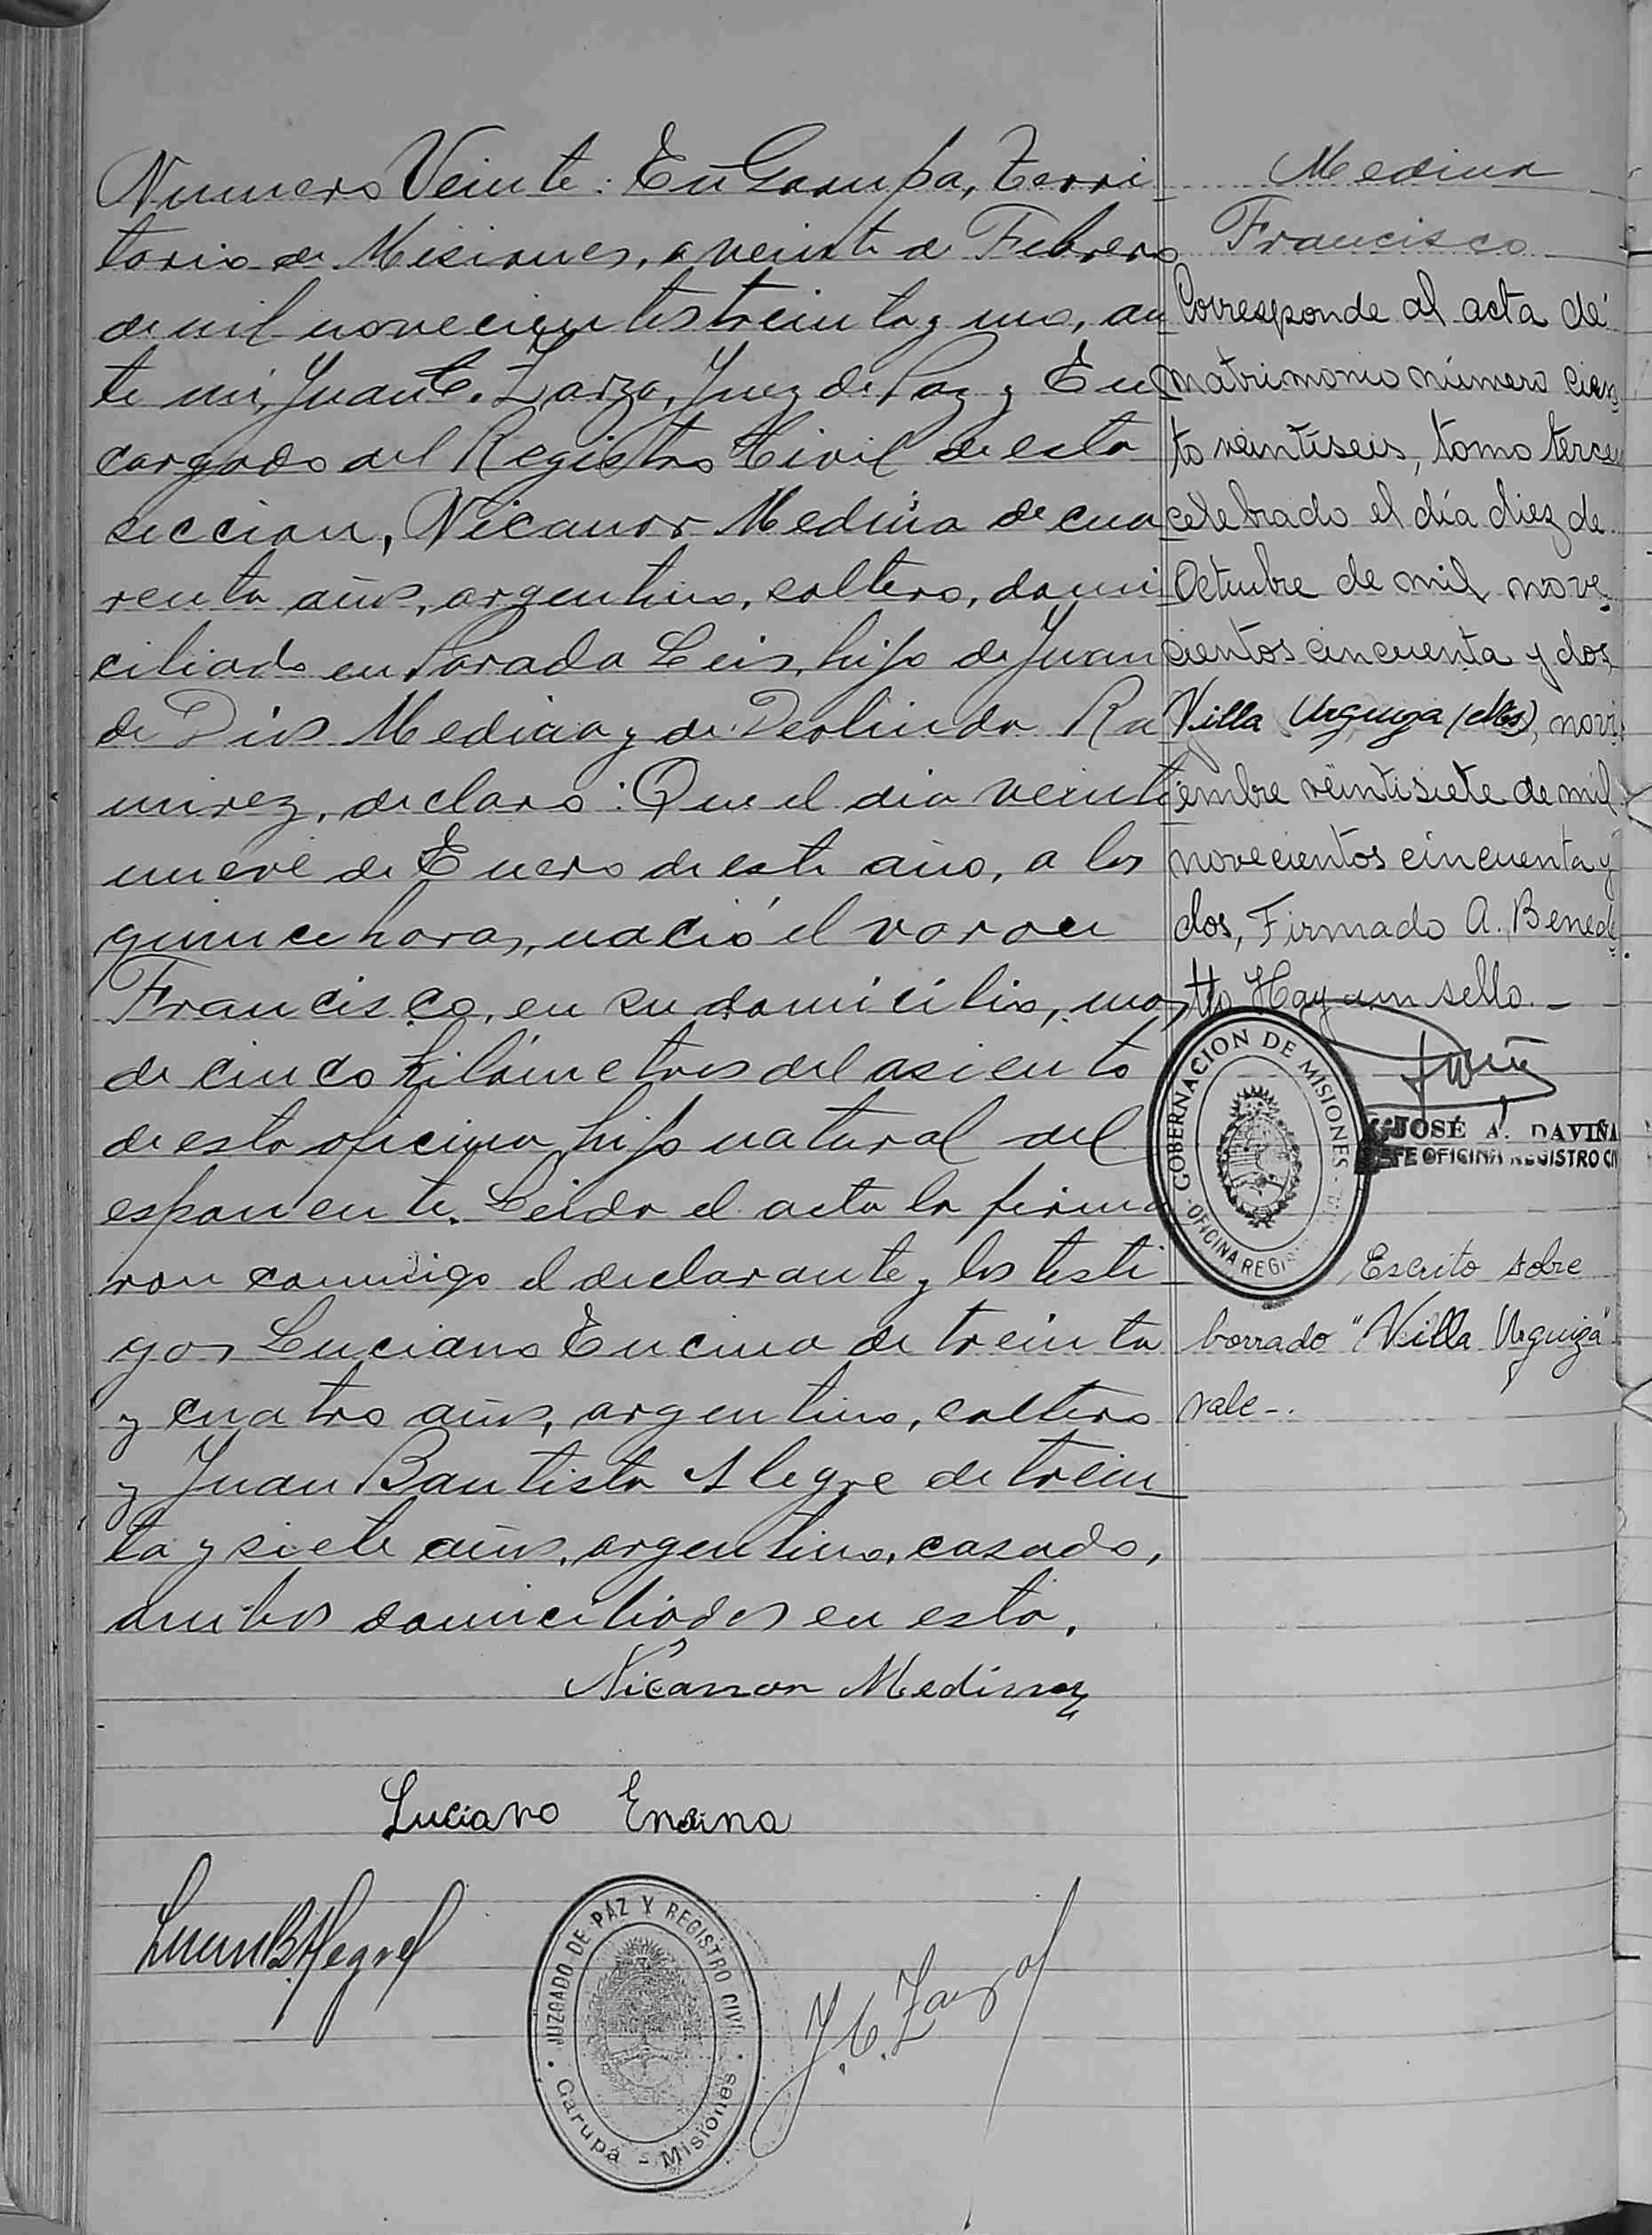 Numero Veinte: En Garupa, Terri-
torio de Misiones, a veinte de Febrero
de mil novecientos treinta y uno, an
te mi, Juan C. Zarza, Juez de Paz y En
cargado del Registro Civil de esta
seccion, Nicanor Medina de cua
renta años, argentino, soltero, domi
ciliado en Parada Leis, hijo de Juan
de Dios Medina y de Deolinda Ra
mirez, declaro: Que el dia veinti
nueve de Enero de este año, a las
quince horas, nació el varon
Francisco, en su domicilio, mas
de cinco kilómetros del asiento
de esta oficina hijo natural del
esponente. Leida el acta la firma
ron conmigo el declarante y los testi-
gos Luciano Encina de treinta
y cuatro años, argentino, soltero
y Juan Bautista Alegre de trein_
ta y siete años, argentino, casado,
ambos domiciliados en esta.
Nicanor Medina
Luciano Ensina
Juan B. Alegre
J. C. Zarza
JUZGADO DE PAZ Y REGISTRO CIVIL
Garupá - Misiones
Medina
Francisco
Corresponde al acta de
matrimonio número cien
to veintiseis, tomo tercero
celebrado el día diez de
Octubre de mil nove
cientos cincuenta y dos,
Villa Urquiza (Ms), novi
embre veintisiete de mil
novecientos cincuenta y
dos, Firmado A. Benede
tto Hay un sello.-
GOBERNACION DE MISIONES
OFICINA REGI
JOSÉ A. DAVIÑA
JEFE OFICINA REGISTRO CI
Escrito sobre
borrado "Villa Urquiza"
vale-.